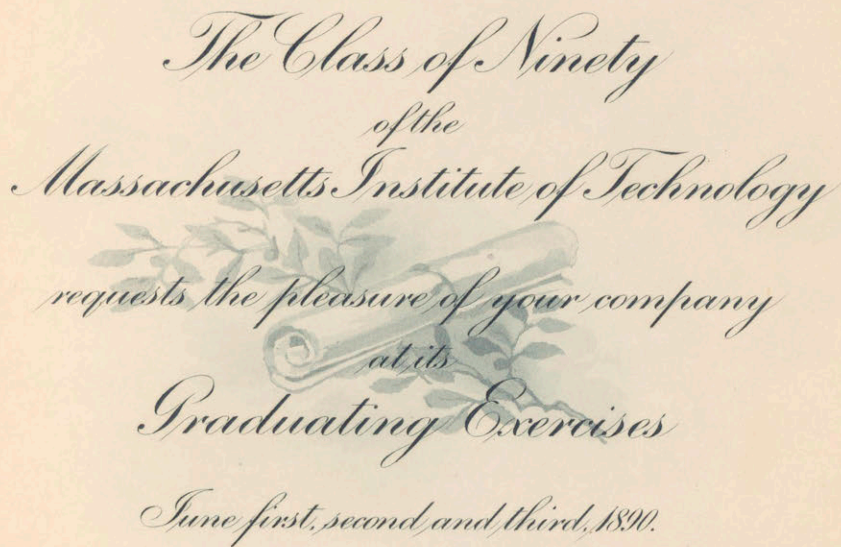 The Class of Ninety
of the
Massachusetts Institute of Technology
requests the pleasure of your company
at its
Graduating Exercises
June first, second and third, 1890.